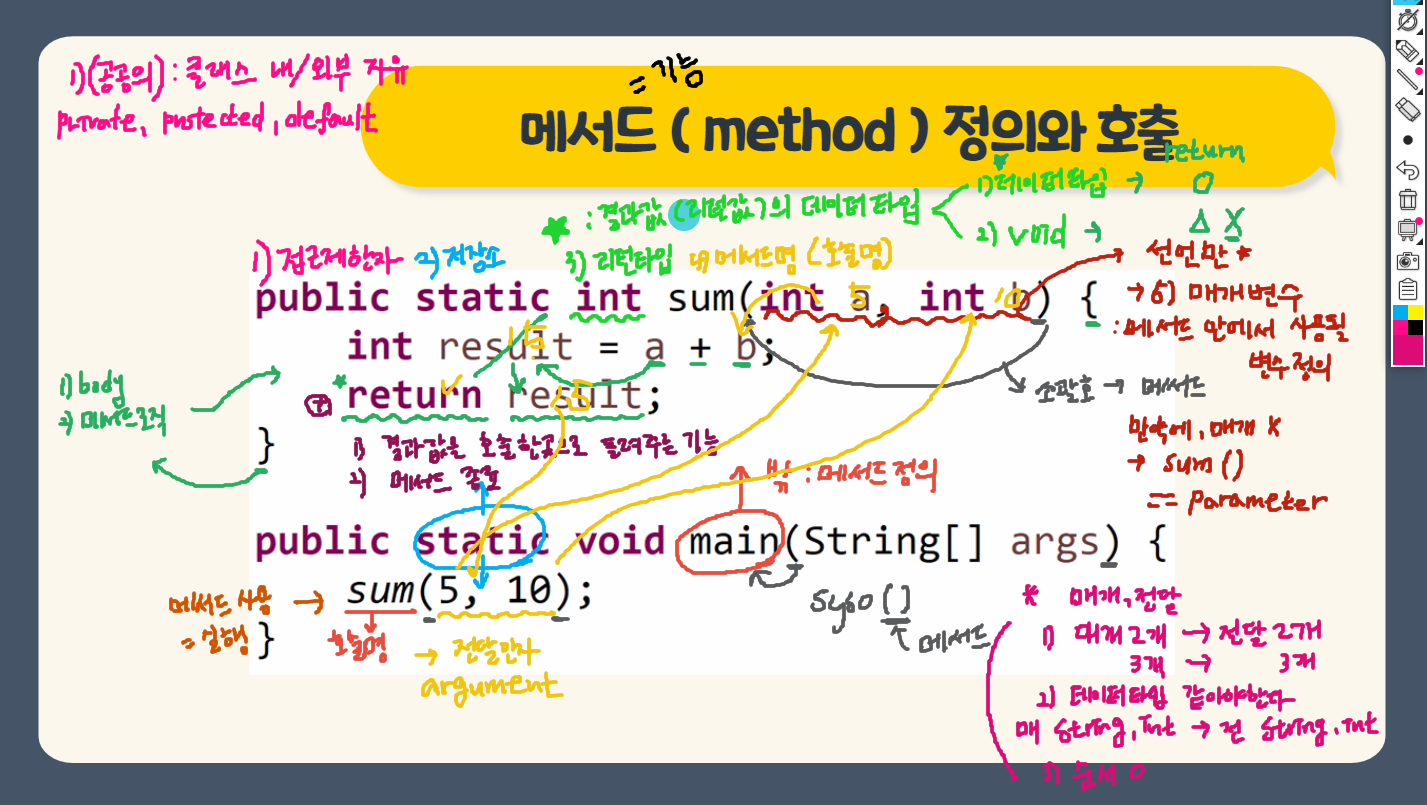 1)(공공의) : 클래스 내/외부 자유
private, protected, default
= 기능
메서드 ( method ) 정의와 호출
return
* 1) 데이터타입 → O
★ : 결과값 (리턴값)의 데이터타입
2) void → △ X
1) 접근제한자 2) 저장소 3) 리턴타입 4) 메서드명 (호출명)
선언만 *
public static int sum(int a, int b) {
5 10
→ 5) 매개변수
: 메서드 안에서 사용될
변수정의
int result = a + b;
15
1) body
2) 메서드로직
* return result;
15
소괄호 → 메서드
}
1) 결과값을 호출한곳으로 돌려주는 기능
2) 메서드 종료
만약에, 매개 X
→ sum ()
== parameter
밖 : 메서드 정의
public static void main(String[] args) {
sum(5, 10);
메서드 사용 →
= 실행
}
호출명
→ 전달인자
argument
syso ( )
메서드
* 매개, 전달
1) 매개 2개 → 전달 2개
3개 → 3개
2) 데이터타입 같아야한다
매 String, Int → 전 String, Int
3) 순서 O